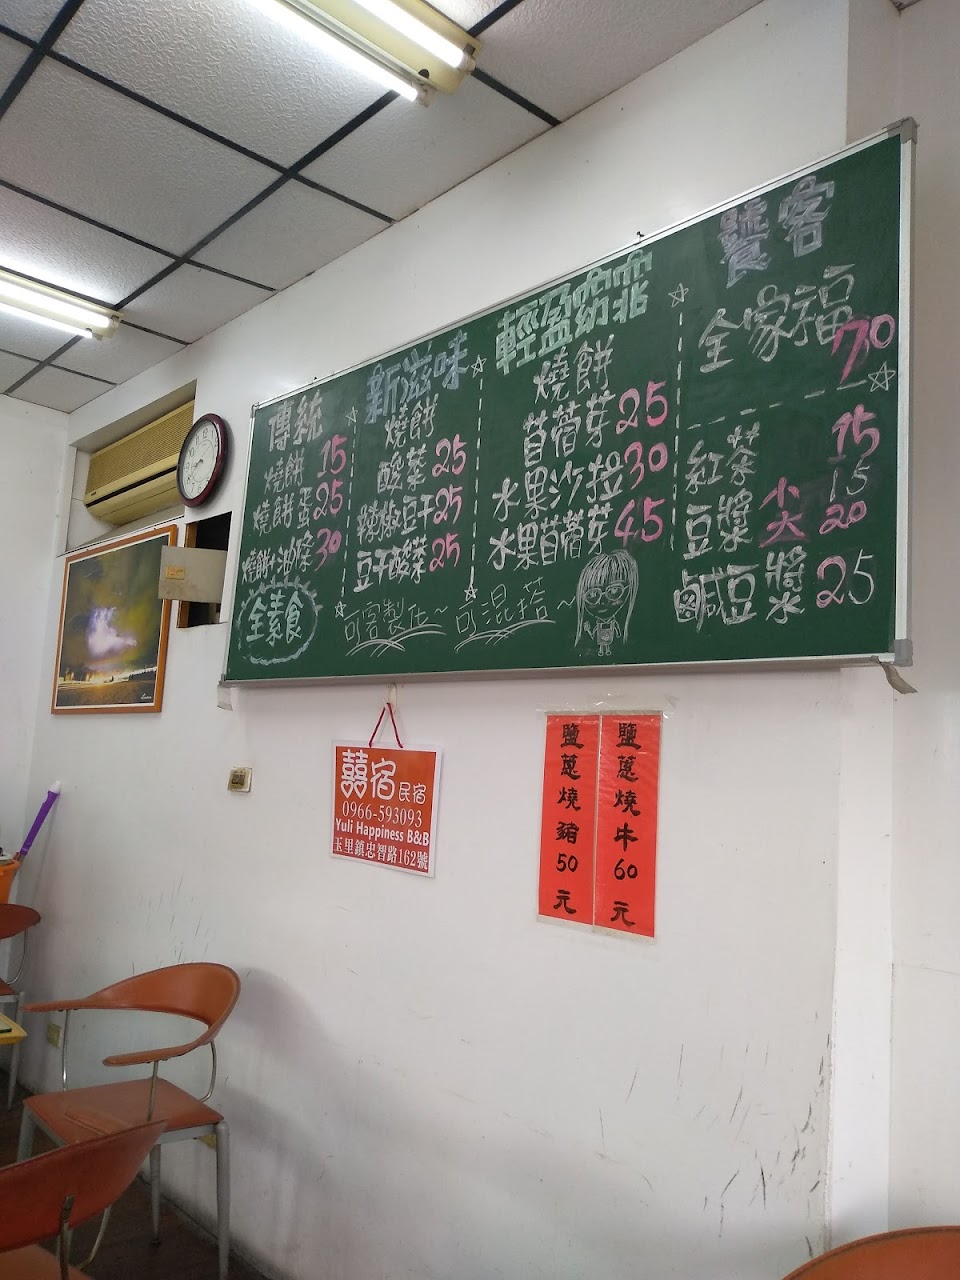 傳統
燒餅 15
燒餅蛋 25
燒餅+油條 30
全素食
新滋味
燒餅
酸菜 25
辣椒豆干 25
豆干酸菜 25
輕盈窈窕
燒餅
苜蓿芽 25
水果沙拉 30
水果苜蓿芽 45
可客製化~可混搭~
饕客
全家福 70
紅茶 15
豆漿 小 15
大 20
鹹豆漿 25
囍宿民宿
0966-593093
Yuli Happiness B&B
玉里鎮忠智路162號
鹽蔥燒牛60元
鹽蔥燒豬50元